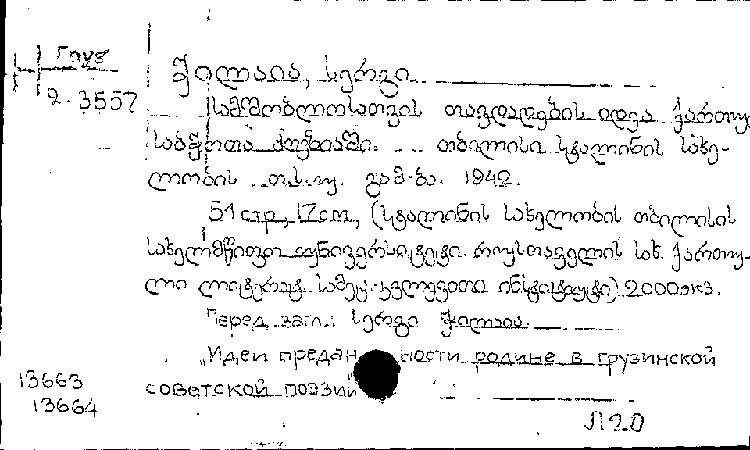 Груз
2.3557
ჭილაია, სერგი
სამშობლოსათვის თავდადების იდეა ქართუ
საბჭოთა პოეზიაში. თბილისი სტალინის სახე-
ლობის თ.ს.უ. გამ-ბა. 1942.
51 стр, 17cm, (სტალინის სახელობის თბილისის
სახელმწიფო უნივერსიტეტი. რუსთაველის სახ. ქართუ-
ლი ლიტერატ. სამეც.-კვლევითი ინსტიტუტი) 2000 экз.
Перед загл.: სერგი ჭილაია.
„Идеи предан ности родине в грузинской
советской поэзии
13663
13664
Л2.0